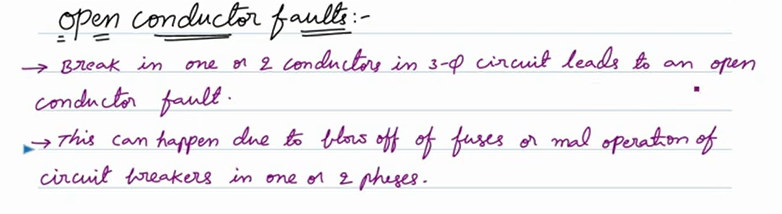 open conductor faults:-
→ Break in one or 2 conductors in 3-φ circuit leads to an open
conductor fault.
→ This can happen due to blow off of fuses or mal operation of
circuit breakers in one or 2 pheses.